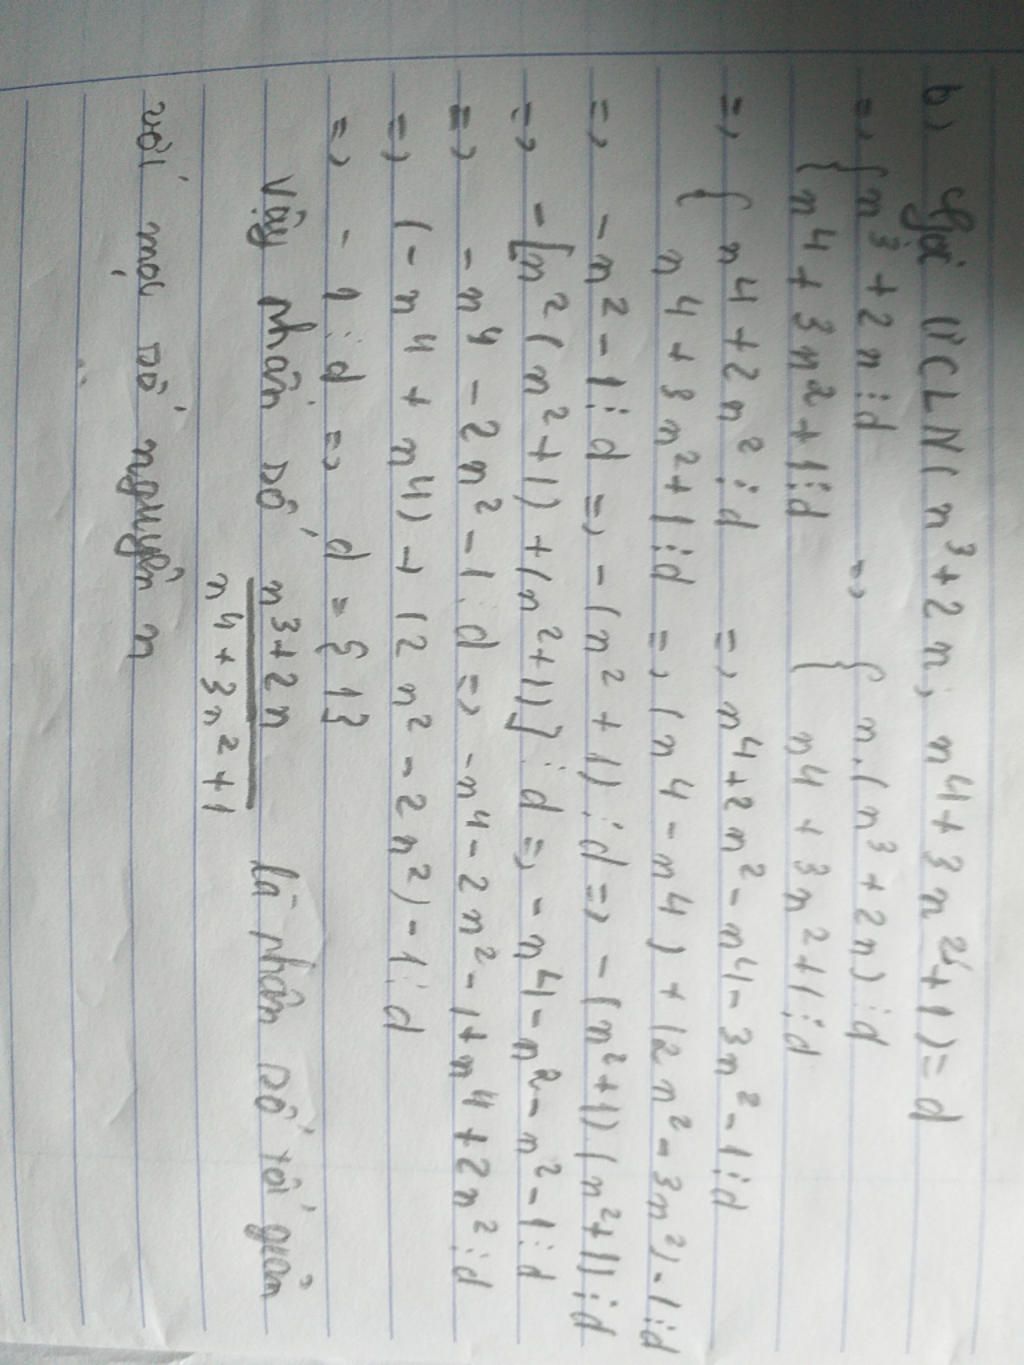 b, Gọi ƯCLN ( n³ + 2n, n⁴ + 3n² + 1) = d
=> { n³ + 2n ⋮ d => { n.(n³ + 2n) ⋮ d
{ n⁴ + 3n² + 1 ⋮ d { n⁴ + 3n² + 1 ⋮ d
=> { n⁴ + 2n² ⋮ d => n⁴ + 2n² - n⁴ - 3n² - 1 ⋮ d
{ n⁴ + 3n² + 1 ⋮ d => (n⁴ - n⁴) + (2n² - 3n²) - 1 ⋮ d
=> - n² - 1 ⋮ d => - (n² + 1) ⋮ d => - (n² + 1) (n² + 1) ⋮ d
=> - [n² (n² + 1) + (n² + 1)] ⋮ d => - n⁴ - n² - n² - 1 ⋮ d
=> - n⁴ - 2n² - 1 ⋮ d => - n⁴ - 2n² - 1 + n⁴ + 2n² ⋮ d
=> (- n⁴ + n⁴) + (2n² - 2n²) - 1 ⋮ d
=> - 1 ⋮ d => d = { 1 }
Vậy phân số n³ + 2n / n⁴ + 3n² + 1 là phân số tối giản
với mọi số nguyên n